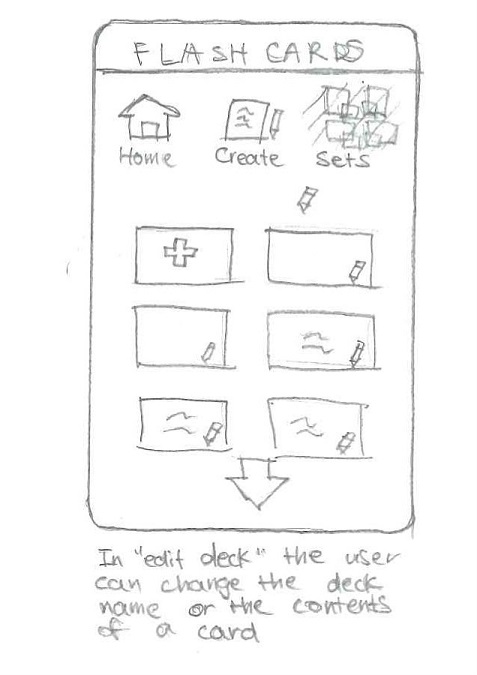 FLASH CARDS
Home Create Sets
In "edit deck" the user
can change the deck
name or the contents
of a card